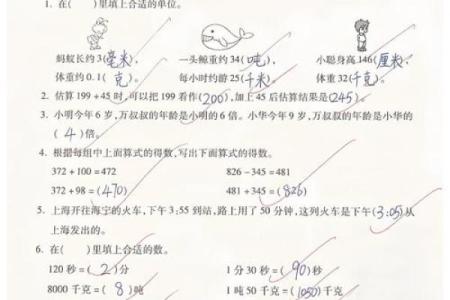 1. 在(　　)里填上合适的单位。
蚂蚁长约3(毫米)， 一头鲸重约34(吨)， 小聪身高146(厘米)，
体重约0.1(克)。 每小时约游25(千米)。 体重32(千克)。
2. 估算199+45时,可以把199看作(200),加上45后估算结果是(245)。
3. 小明今年6岁,万叔叔的年龄是小明的6倍。小华今年9岁,万叔叔的年龄是小华的
(4)倍。
4. 根据每组中上面算式的得数,写出下面算式的得数。
372+100=472 826-345=481
372+98=(470) 481+345=(826)
5. 上海开往海宁的火车,下午3:55到站,路上用了50分钟,这列火车是下午(3:05)从
上海发出的。
6. 在(　　)里填上合适的数。
120秒=(2)分 1分30秒=(90)秒
8000千克=(8)吨 1吨50千克=(1050)千克